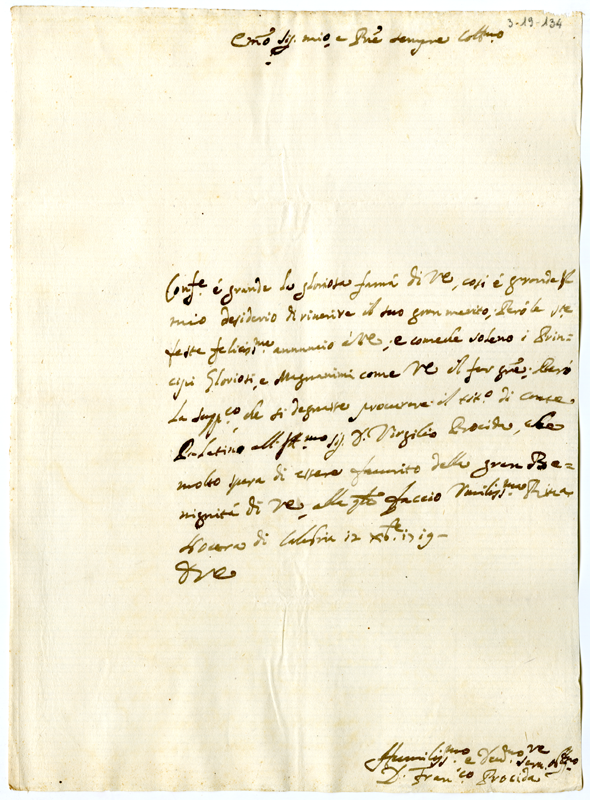 3-19-134
Ecc.mo Sig. mio e P.ne sempre Coll.mo
Conf.e é grande la gloriosa fama di VE, cosi é grande il
mio desiderio di riverire il suo gran merito, Peró le ste
feste felicis.me annuncio à VE; e come che soleno i Prin=
cipi Gloriosi, e Magnanimi come VE il far gre. Però
La supp.co, che si degnasse procurare il tit.o di conte
Palatino all'Ill.mo Sig. D. Virgilio Procida, che
molto spera di essere favorito della gran Be=
nignità di VE, alla q.le faccio Umiliss.mo
Nocera di Calabria 12 Xb.re 1719
D VE
Humiliss.mo e Dev.mo Ser.re
D. Fran.co Procida